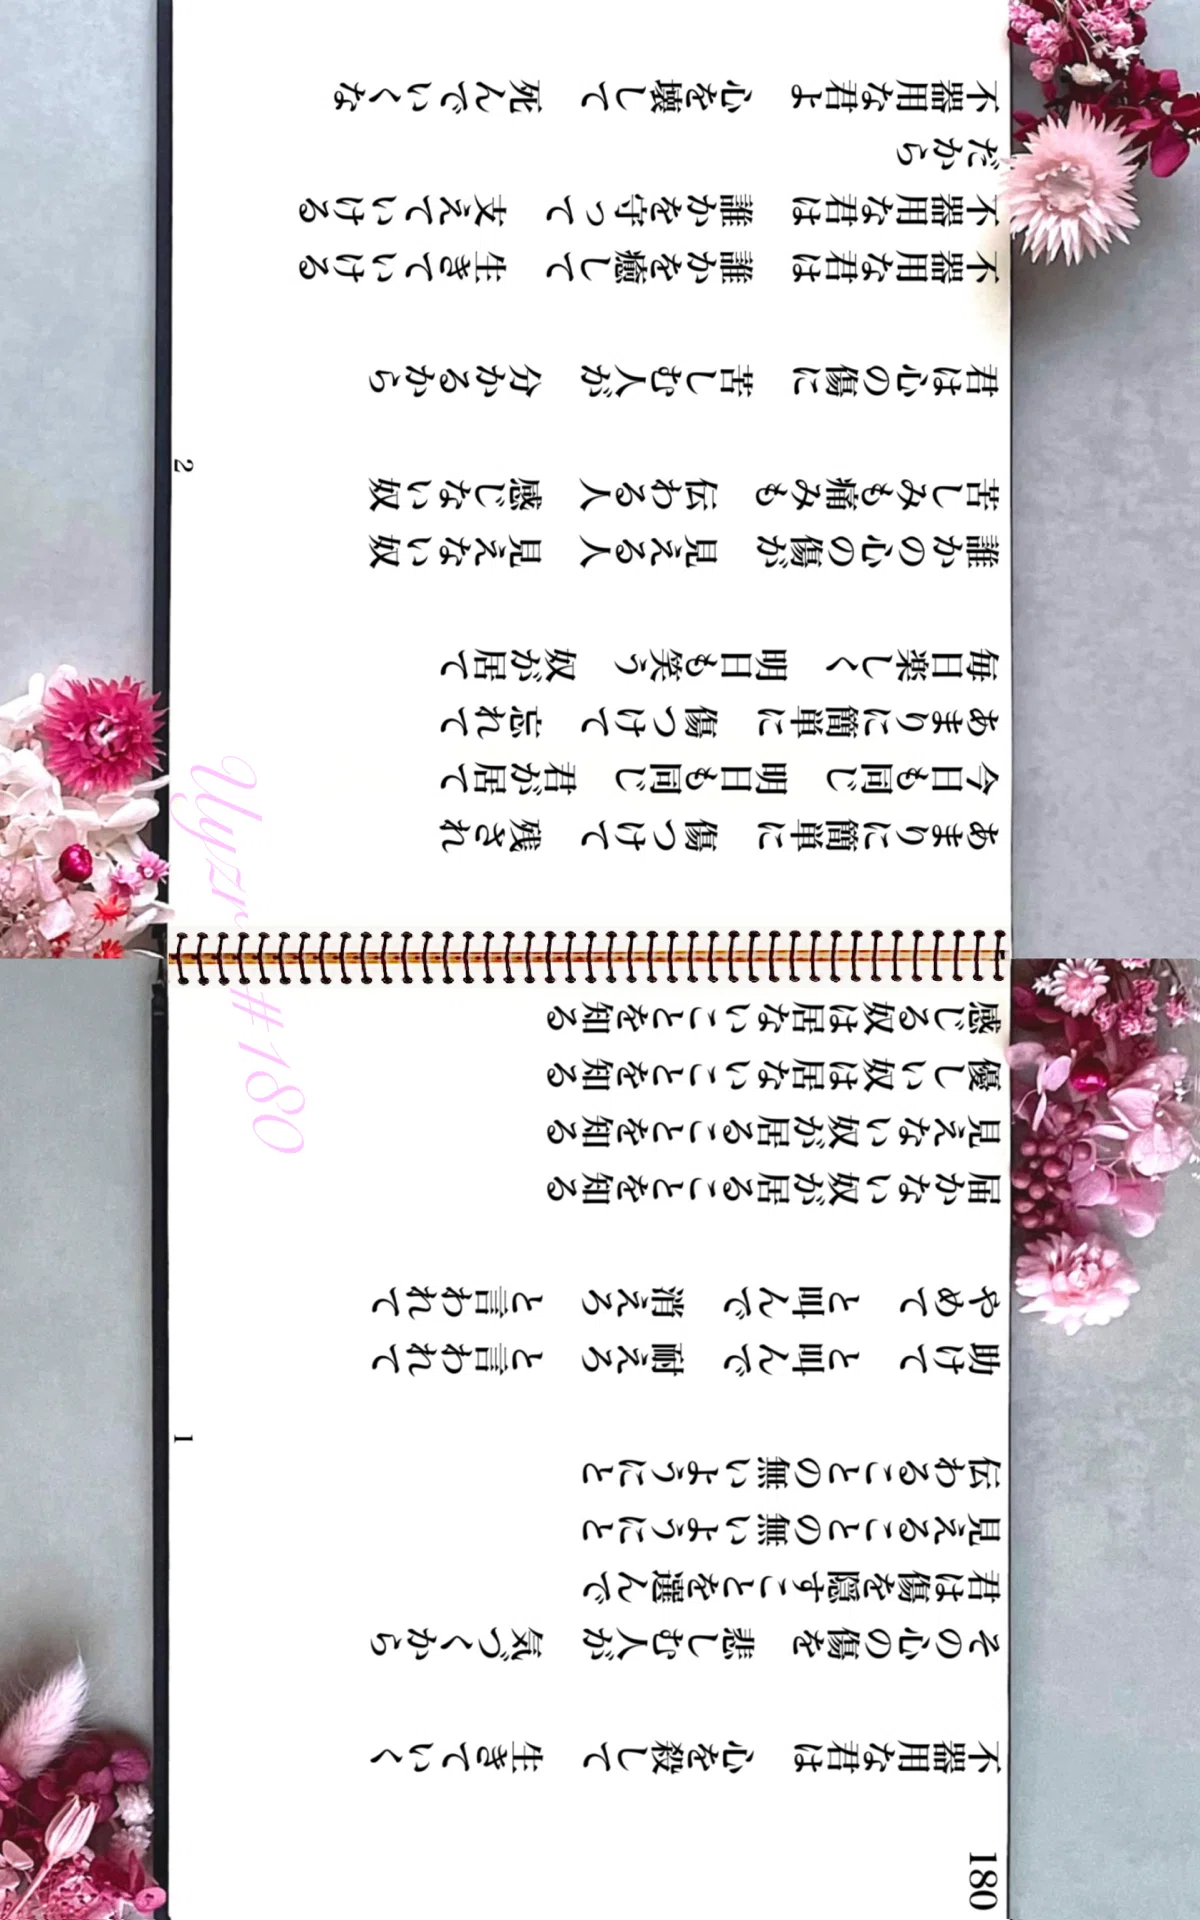 180
不器用な君は　心を殺して　生きていく
その心の傷を　悲しむ人が　気づくから
君は傷を隠すことを選んで
見えることの無いようにと
伝わることの無いようにと
助けて　と叫んで　耐えろ　と言われて
やめて　と叫んで　消えろ　と言われて
届かない奴が居ることを知る
見えない奴が居ることを知る
優しい奴は居ないことを知る
感じる奴は居ないことを知る
1
あまりに簡単に　傷つけて　残され
今日も同じ　明日も同じ　君が居て
あまりに簡単に　傷つけて　忘れて
毎日楽しく　明日も笑う　奴が居て
誰かの心の傷が　見える人　見えない奴
苦しみも痛みも　伝わる人　感じない奴
君は心の傷に　苦しむ人が　分かるから
不器用な君は　誰かを癒して　生きていける
不器用な君は　誰かを守って　支えていける
だから
不器用な君よ　心を壊して　死んでいくな
2
#180